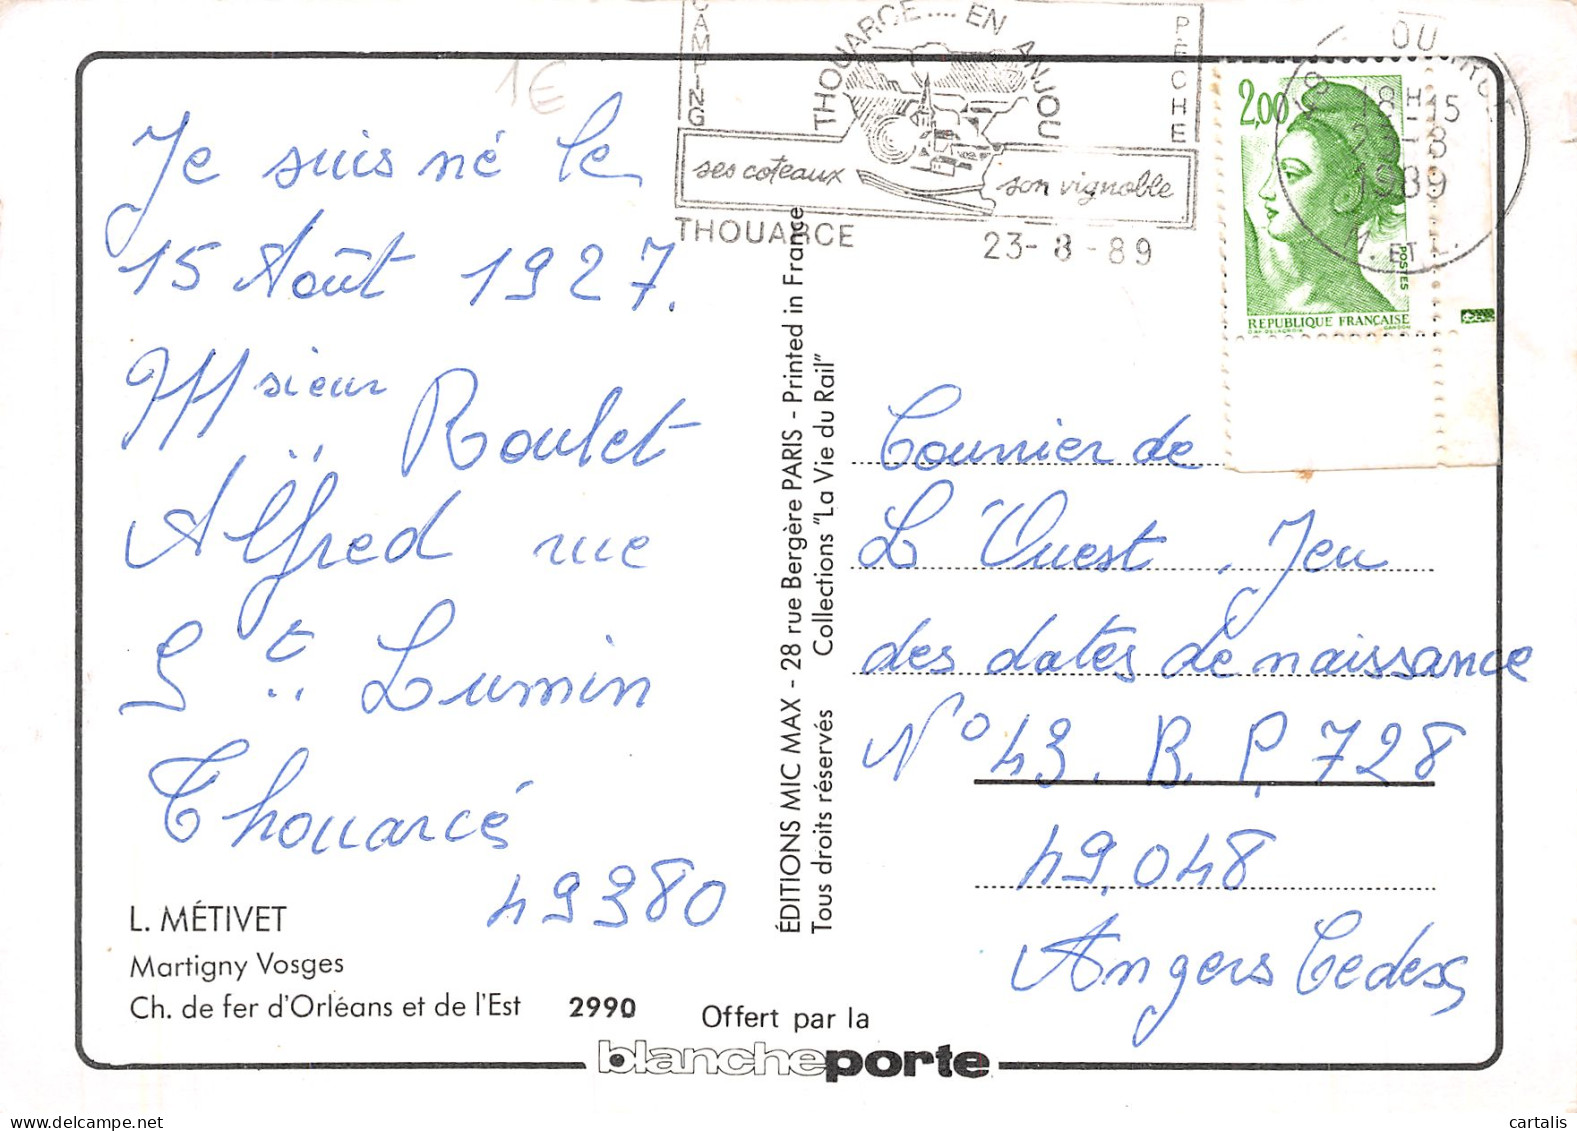 1€
CAMPING
THOUARCE.... EN ANJOU
PECHE
ses coteaux
son vignoble
THOUARCE
23-8-89
18H15
23-8
1989
M. ET L.
2,00
POSTES
REPUBLIQUE FRANÇAISE
Je suis né le
15 Août 1927.
Msieur Roulet
Alfred rue
St Lumin
Thouarcé
49380
L. MÉTIVET
Martigny Vosges
Ch. de fer d'Orléans et de l'Est 2990
ÉDITIONS MIC MAX - 28 rue Bergère PARIS - Printed in France
Tous droits réservés Collections "La Vie du Rail"
Courrier de
L'Ouest. Jeu
des dates de naissance
N° 43. B. P. 728
49.048
Angers Cedex
Offert par la
blancheporte
cartalis